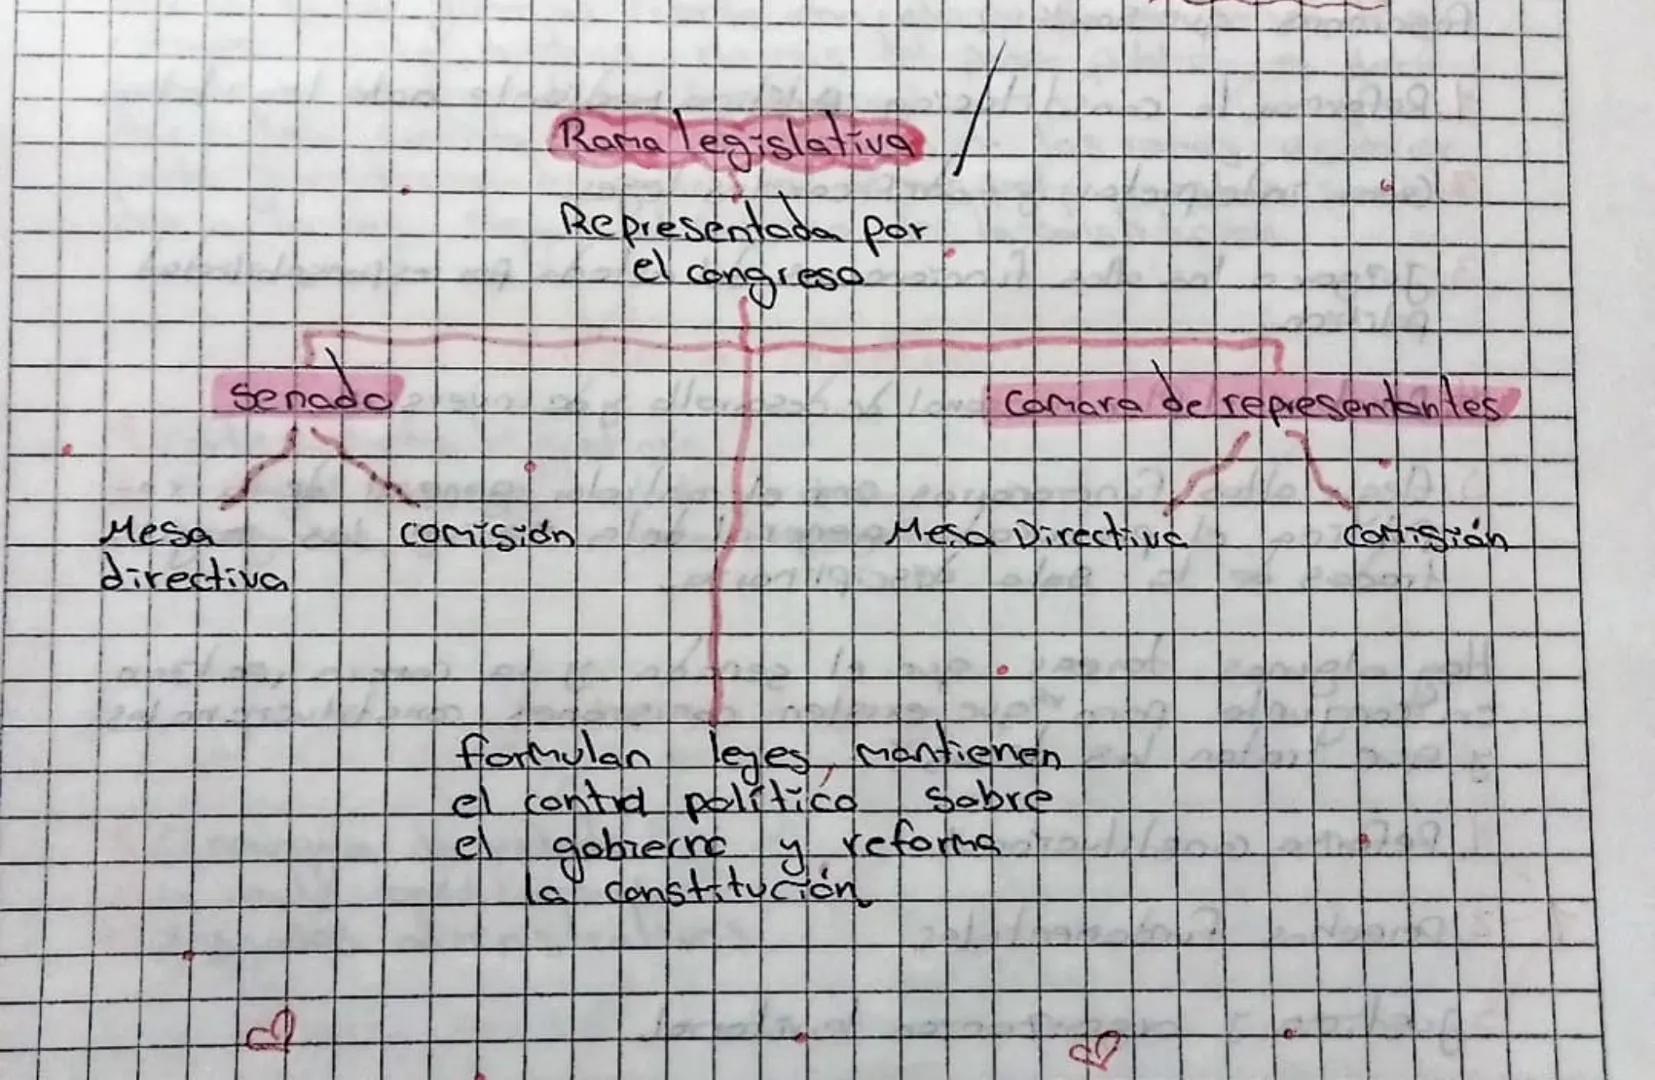 Rama legislativa
Representada por
el congreso
Senado
camara de representantes
Mesa
directiva
comisión
Mesa Directiva
comisión
formulan leyes, mantienen
el control político sobre
el gobierno y reforma
la constitución